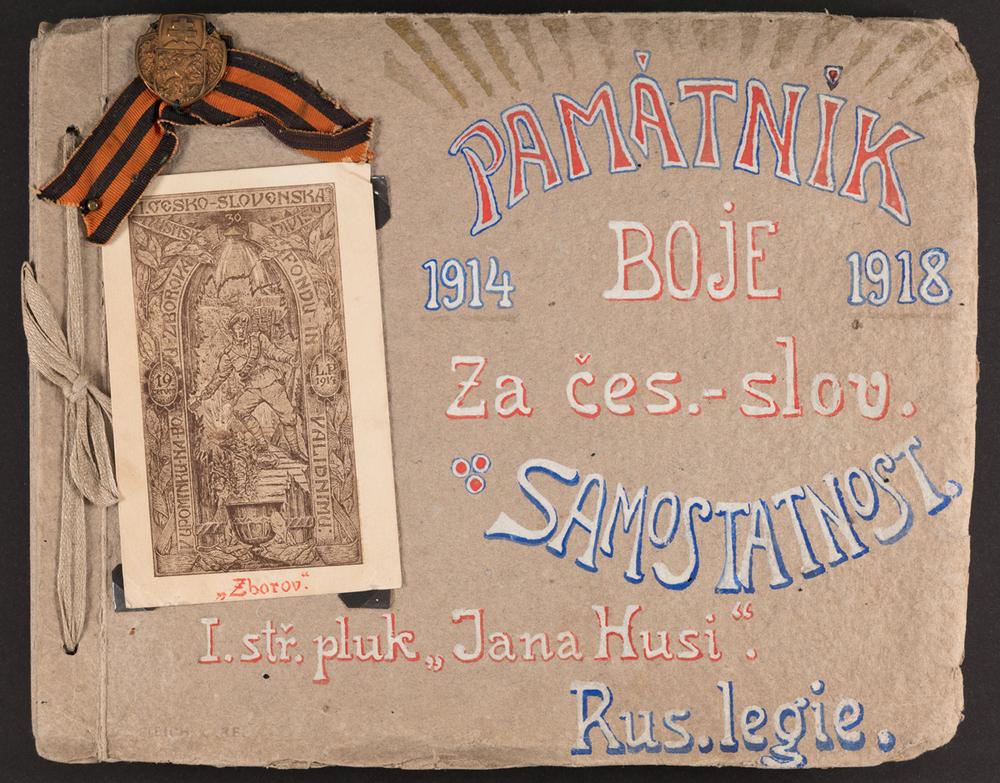 PAMÁTNÍK
1914 BOJE 1918
Za čes.-slov.
SAMOSTATNOST.
ČESKO-SLOVENSKA
30
FONDU IN
VALIDNIMU
UPOMINKA NA
U ZBOROVA
19
L.P.
1917
„Zborov.“
I. stř. pluk „Jana Husi“.
Rus. legie.